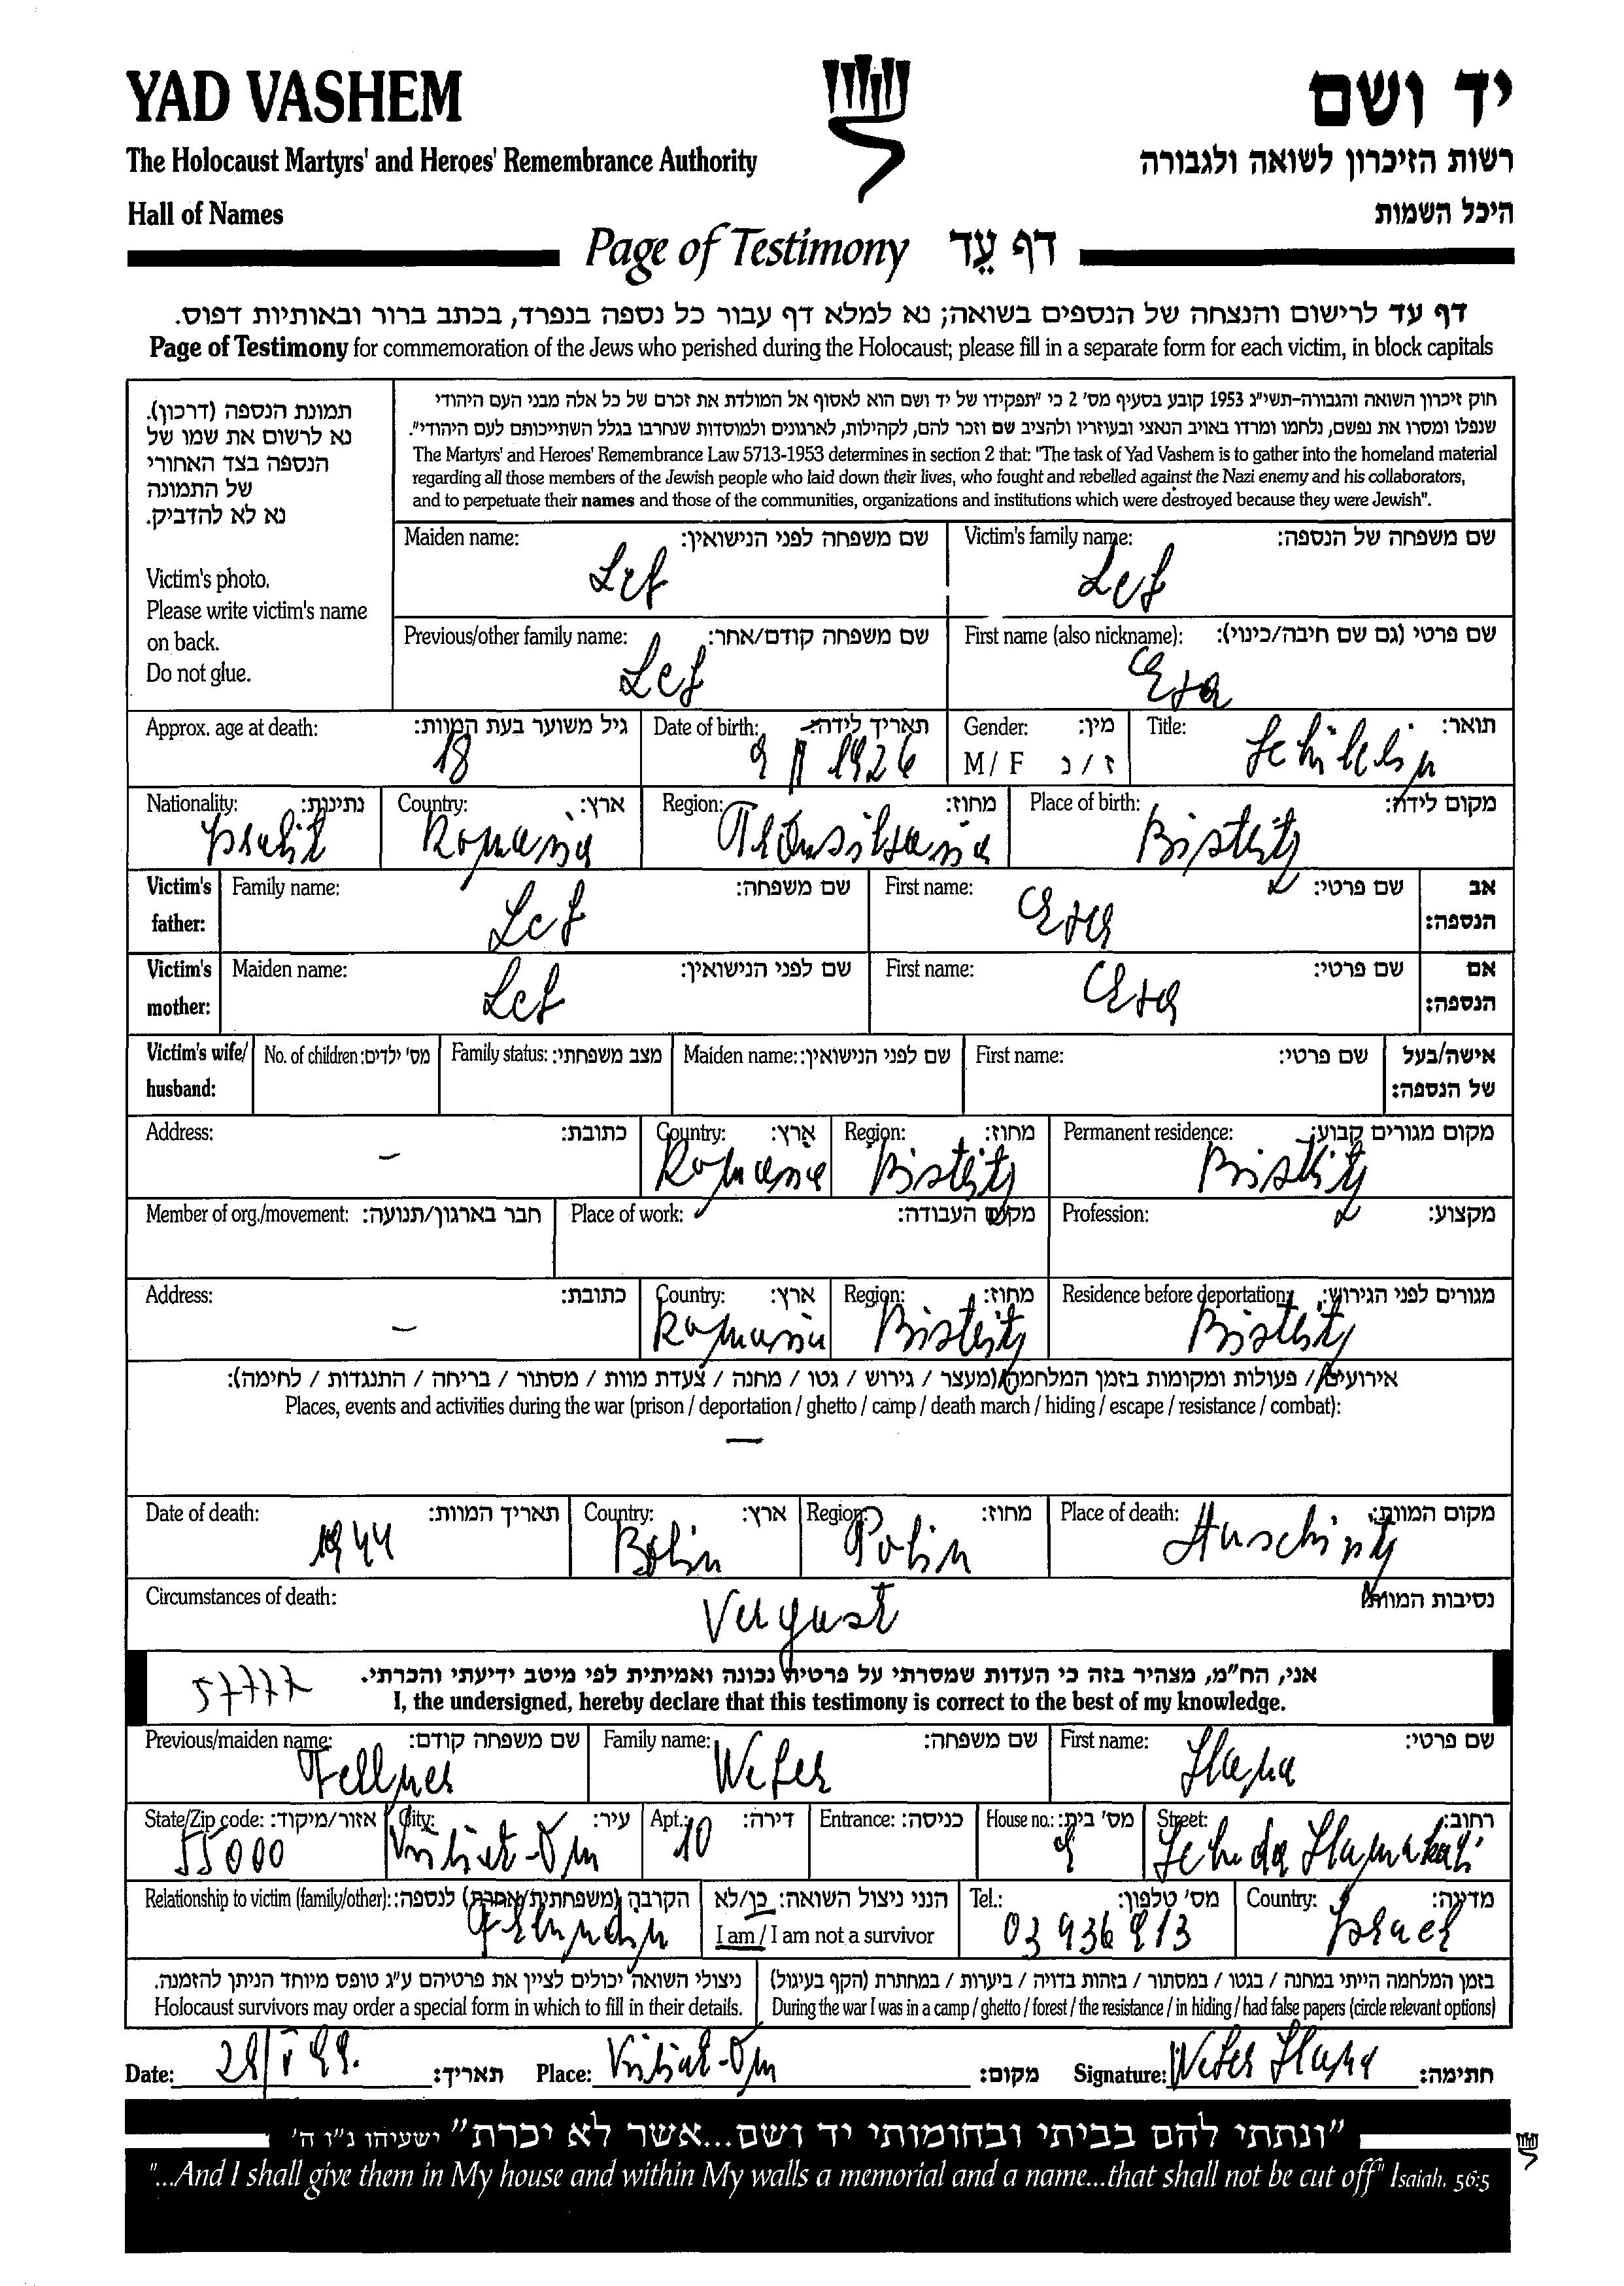 YAD VASHEM
יד ושם
The Holocaust Martyrs' and Heroes' Remembrance Authority
רשות הזיכרון לשואה ולגבורה
Hall of Names
היכל השמות
Page of Testimony דף עֵד
דף עד לרישום והנצחה של הנספים בשואה; נא למלא דף עבור כל נספה בנפרד, בכתב ברור ובאותיות דפוס.
Page of Testimony for commemoration of the Jews who perished during the Holocaust; please fill in a separate form for each victim, in block capitals
תמונת הנספה (דרכון).
נא לרשום את שמו של
הנספה בצד האחורי
של התמונה
נא לא להדביק.
Victim's photo.
Please write victim's name
on back.
Do not glue.
חוק זיכרון השואה והגבורה-תשי"ג 1953 קובע בסעיף מס' 2 כי "תפקידו של יד ושם הוא לאסוף אל המולדת את זכרם של כל אלה מבני העם היהודי
שנפלו ומסרו את נפשם, נלחמו ומרדו באויב הנאצי ובעוזריו ולהציב שם וזכר להם, לקהילות, לארגונים ולמוסדות שנחרבו בגלל השתייכותם לעם היהודי".
The Martyrs' and Heroes' Remembrance Law 5713-1953 determines in section 2 that: "The task of Yad Vashem is to gather into the homeland material
regarding all those members of the Jewish people who laid down their lives, who fought and rebelled against the Nazi enemy and his collaborators,
and to perpetuate their names and those of the communities, organizations and institutions which were destroyed because they were Jewish".
Maiden name: שם משפחה לפני הנישואין: Victim's family name: שם משפחה של הנספה:
Previous/other family name: שם משפחה קודם/אחר: First name (also nickname): שם פרטי (גם שם חיבה/כינוי):
Approx. age at death: גיל משוער בעת המוות: Date of birth: תאריך לידה: Gender: מין: Title: תואר:
18 9 II 1926 M / F ז / נ
Nationality: נתינות: Country: ארץ: Region: מחוז: Place of birth: מקום לידה:
Romania Bistritz
Victim's father: Family name: שם משפחה: First name: שם פרטי: אב הנספה:
Victim's mother: Maiden name: שם לפני הנישואין: First name: שם פרטי: אם הנספה:
Victim's wife/ husband: No. of children: מס' ילדים: Family status: מצב משפחתי: Maiden name: שם לפני הנישואין: First name: שם פרטי: אישה/בעל של הנספה:
Address: כתובת: Country: ארץ: Region: מחוז: Permanent residence: מקום מגורים קבוע:
– Romania Bistritz Bistritz
Member of org./movement: חבר בארגון/תנועה: Place of work: מקום העבודה: Profession: מקצוע:
Address: כתובת: Country: ארץ: Region: מחוז: Residence before deportation: מגורים לפני הגירוש:
– Romania Bistritz Bistritz
אירועים / פעולות ומקומות בזמן המלחמה (מעצר / גירוש / גטו / מחנה / צעדת מוות / מסתור / בריחה / התנגדות / לחימה):
Places, events and activities during the war (prison / deportation / ghetto / camp / death march / hiding / escape / resistance / combat):
–
Date of death: תאריך המוות: Country: ארץ: Region: מחוז: Place of death: מקום המוות:
1944 Polin Polin Auschintz
Circumstances of death: נסיבות המוות:
Vergast
אני, הח"מ, מצהיר בזה כי העדות שמסרתי על פרטיה נכונה ואמיתית לפי מיטב ידיעתי והכרתי.
I, the undersigned, hereby declare that this testimony is correct to the best of my knowledge.
57777
Previous/maiden name: שם משפחה קודם: Family name: שם משפחה: First name: שם פרטי:
Fellner Weber Hana
State/Zip code: אזור/מיקוד: City: עיר: Apt.: דירה: Entrance: כניסה: House no.: מס' בית: Street: רחוב:
55000 10 9
Relationship to victim (family/other): הקרבה (משפחתית/אחרת) לנספה: הנני ניצול השואה: כן/לא Tel.: מס' טלפון: Country: מדינה:
I am / I am not a survivor 03 936 913 Israel
ניצולי השואה יכולים לציין את פרטיהם ע"ג טופס מיוחד הניתן להזמנה.
Holocaust survivors may order a special form in which to fill in their details.
בזמן המלחמה הייתי במחנה / בגטו / במסתור / בזהות בדויה / ביערות / במחתרת (הקף בעיגול)
During the war I was in a camp / ghetto / forest / the resistance / in hiding / had false papers (circle relevant options)
Date: תאריך: Place: מקום: Signature: Weber Hana חתימה:
"ונתתי להם בביתי ובחומותי יד ושם...אשר לא יכרת" ישעיהו נ"ו ה'
"...And I shall give them in My house and within My walls a memorial and a name...that shall not be cut off" Isaiah, 56:5